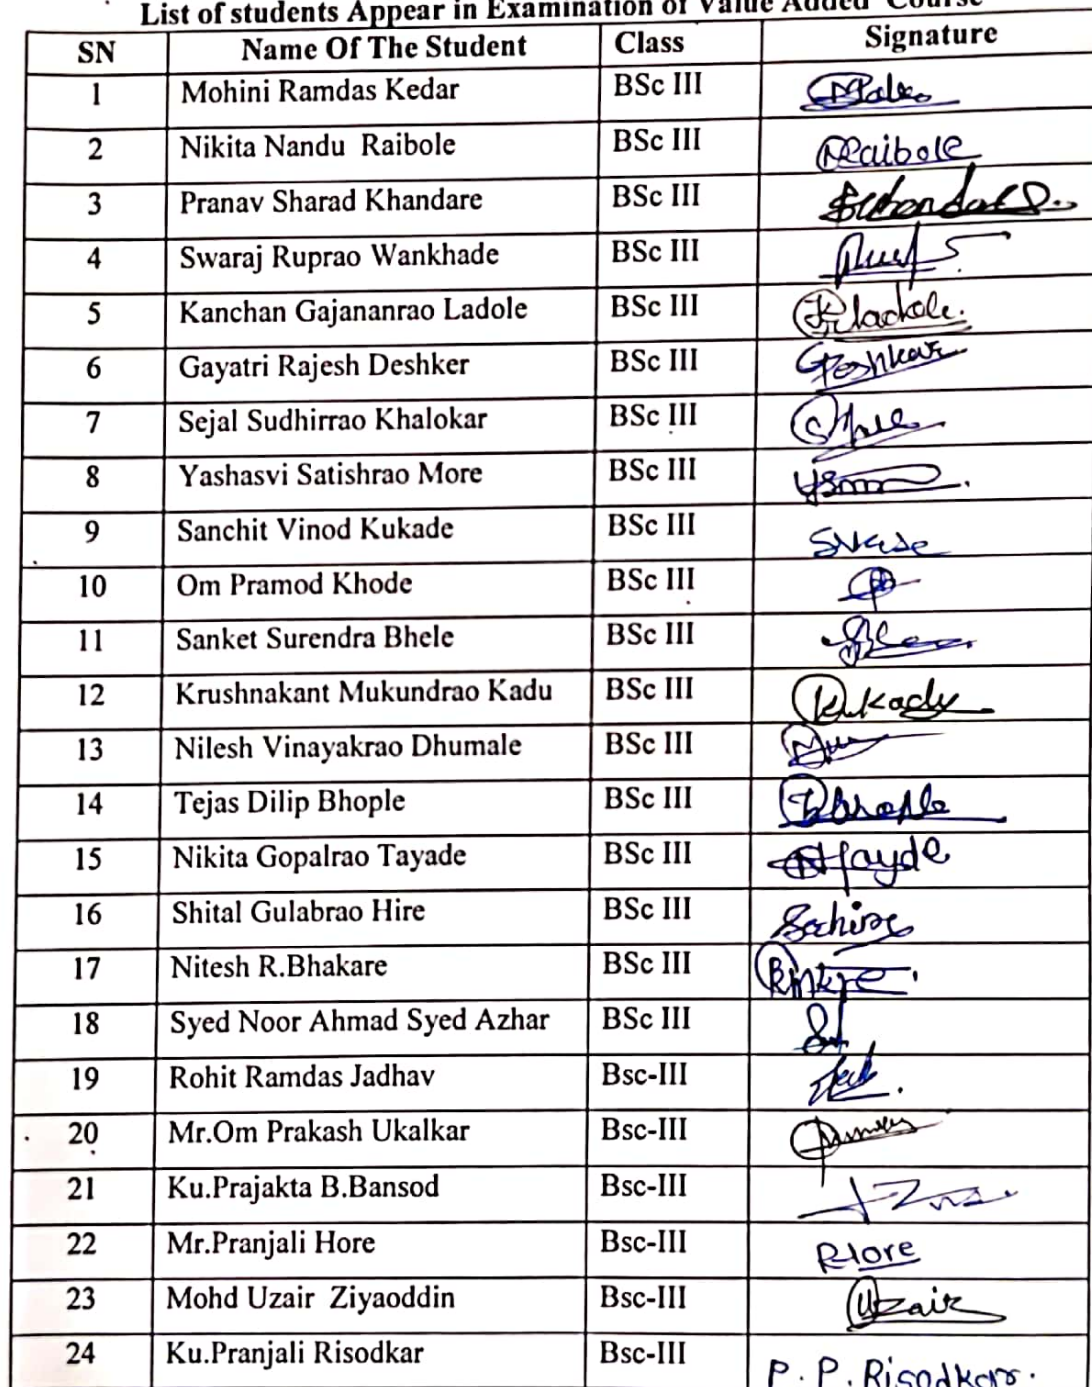 List of students Appear in Examination of Value Added Course
SN Name Of The Student Class Signature
1 Mohini Ramdas Kedar BSc III
2 Nikita Nandu Raibole BSc III Raibole
3 Pranav Sharad Khandare BSc III
4 Swaraj Ruprao Wankhade BSc III
5 Kanchan Gajananrao Ladole BSc III
6 Gayatri Rajesh Deshker BSc III
7 Sejal Sudhirrao Khalokar BSc III
8 Yashasvi Satishrao More BSc III
9 Sanchit Vinod Kukade BSc III
10 Om Pramod Khode BSc III
11 Sanket Surendra Bhele BSc III
12 Krushnakant Mukundrao Kadu BSc III
13 Nilesh Vinayakrao Dhumale BSc III
14 Tejas Dilip Bhople BSc III
15 Nikita Gopalrao Tayade BSc III
16 Shital Gulabrao Hire BSc III
17 Nitesh R.Bhakare BSc III
18 Syed Noor Ahmad Syed Azhar BSc III
19 Rohit Ramdas Jadhav Bsc-III
20 Mr.Om Prakash Ukalkar Bsc-III
21 Ku.Prajakta B.Bansod Bsc-III
22 Mr.Pranjali Hore Bsc-III
23 Mohd Uzair Ziyaoddin Bsc-III Uzair
24 Ku.Pranjali Risodkar Bsc-III P. P. Risodkar.